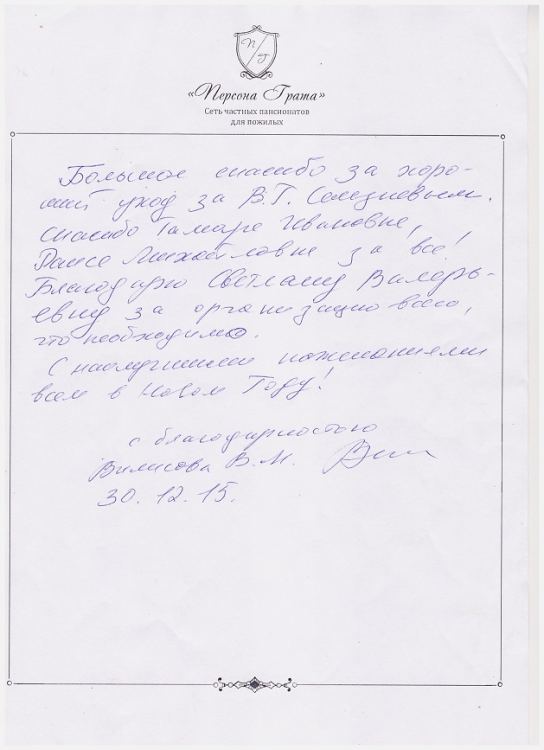 П/Г
«Персона Грата»
Сеть частных пансионатов
для пожилых
Большое спасибо за хоро-
ший уход за В.Г. Селезневым.
Спасибо Тамаре Ивановне,
Раисе Михайловне за все!
Благодарю Светлану Валерь-
евну за организацию всего,
что необходимо.
С наилучшими пожеланиями
всем в Новом Году!
с благодарностью
Вилисова В.М.
30.12.15.